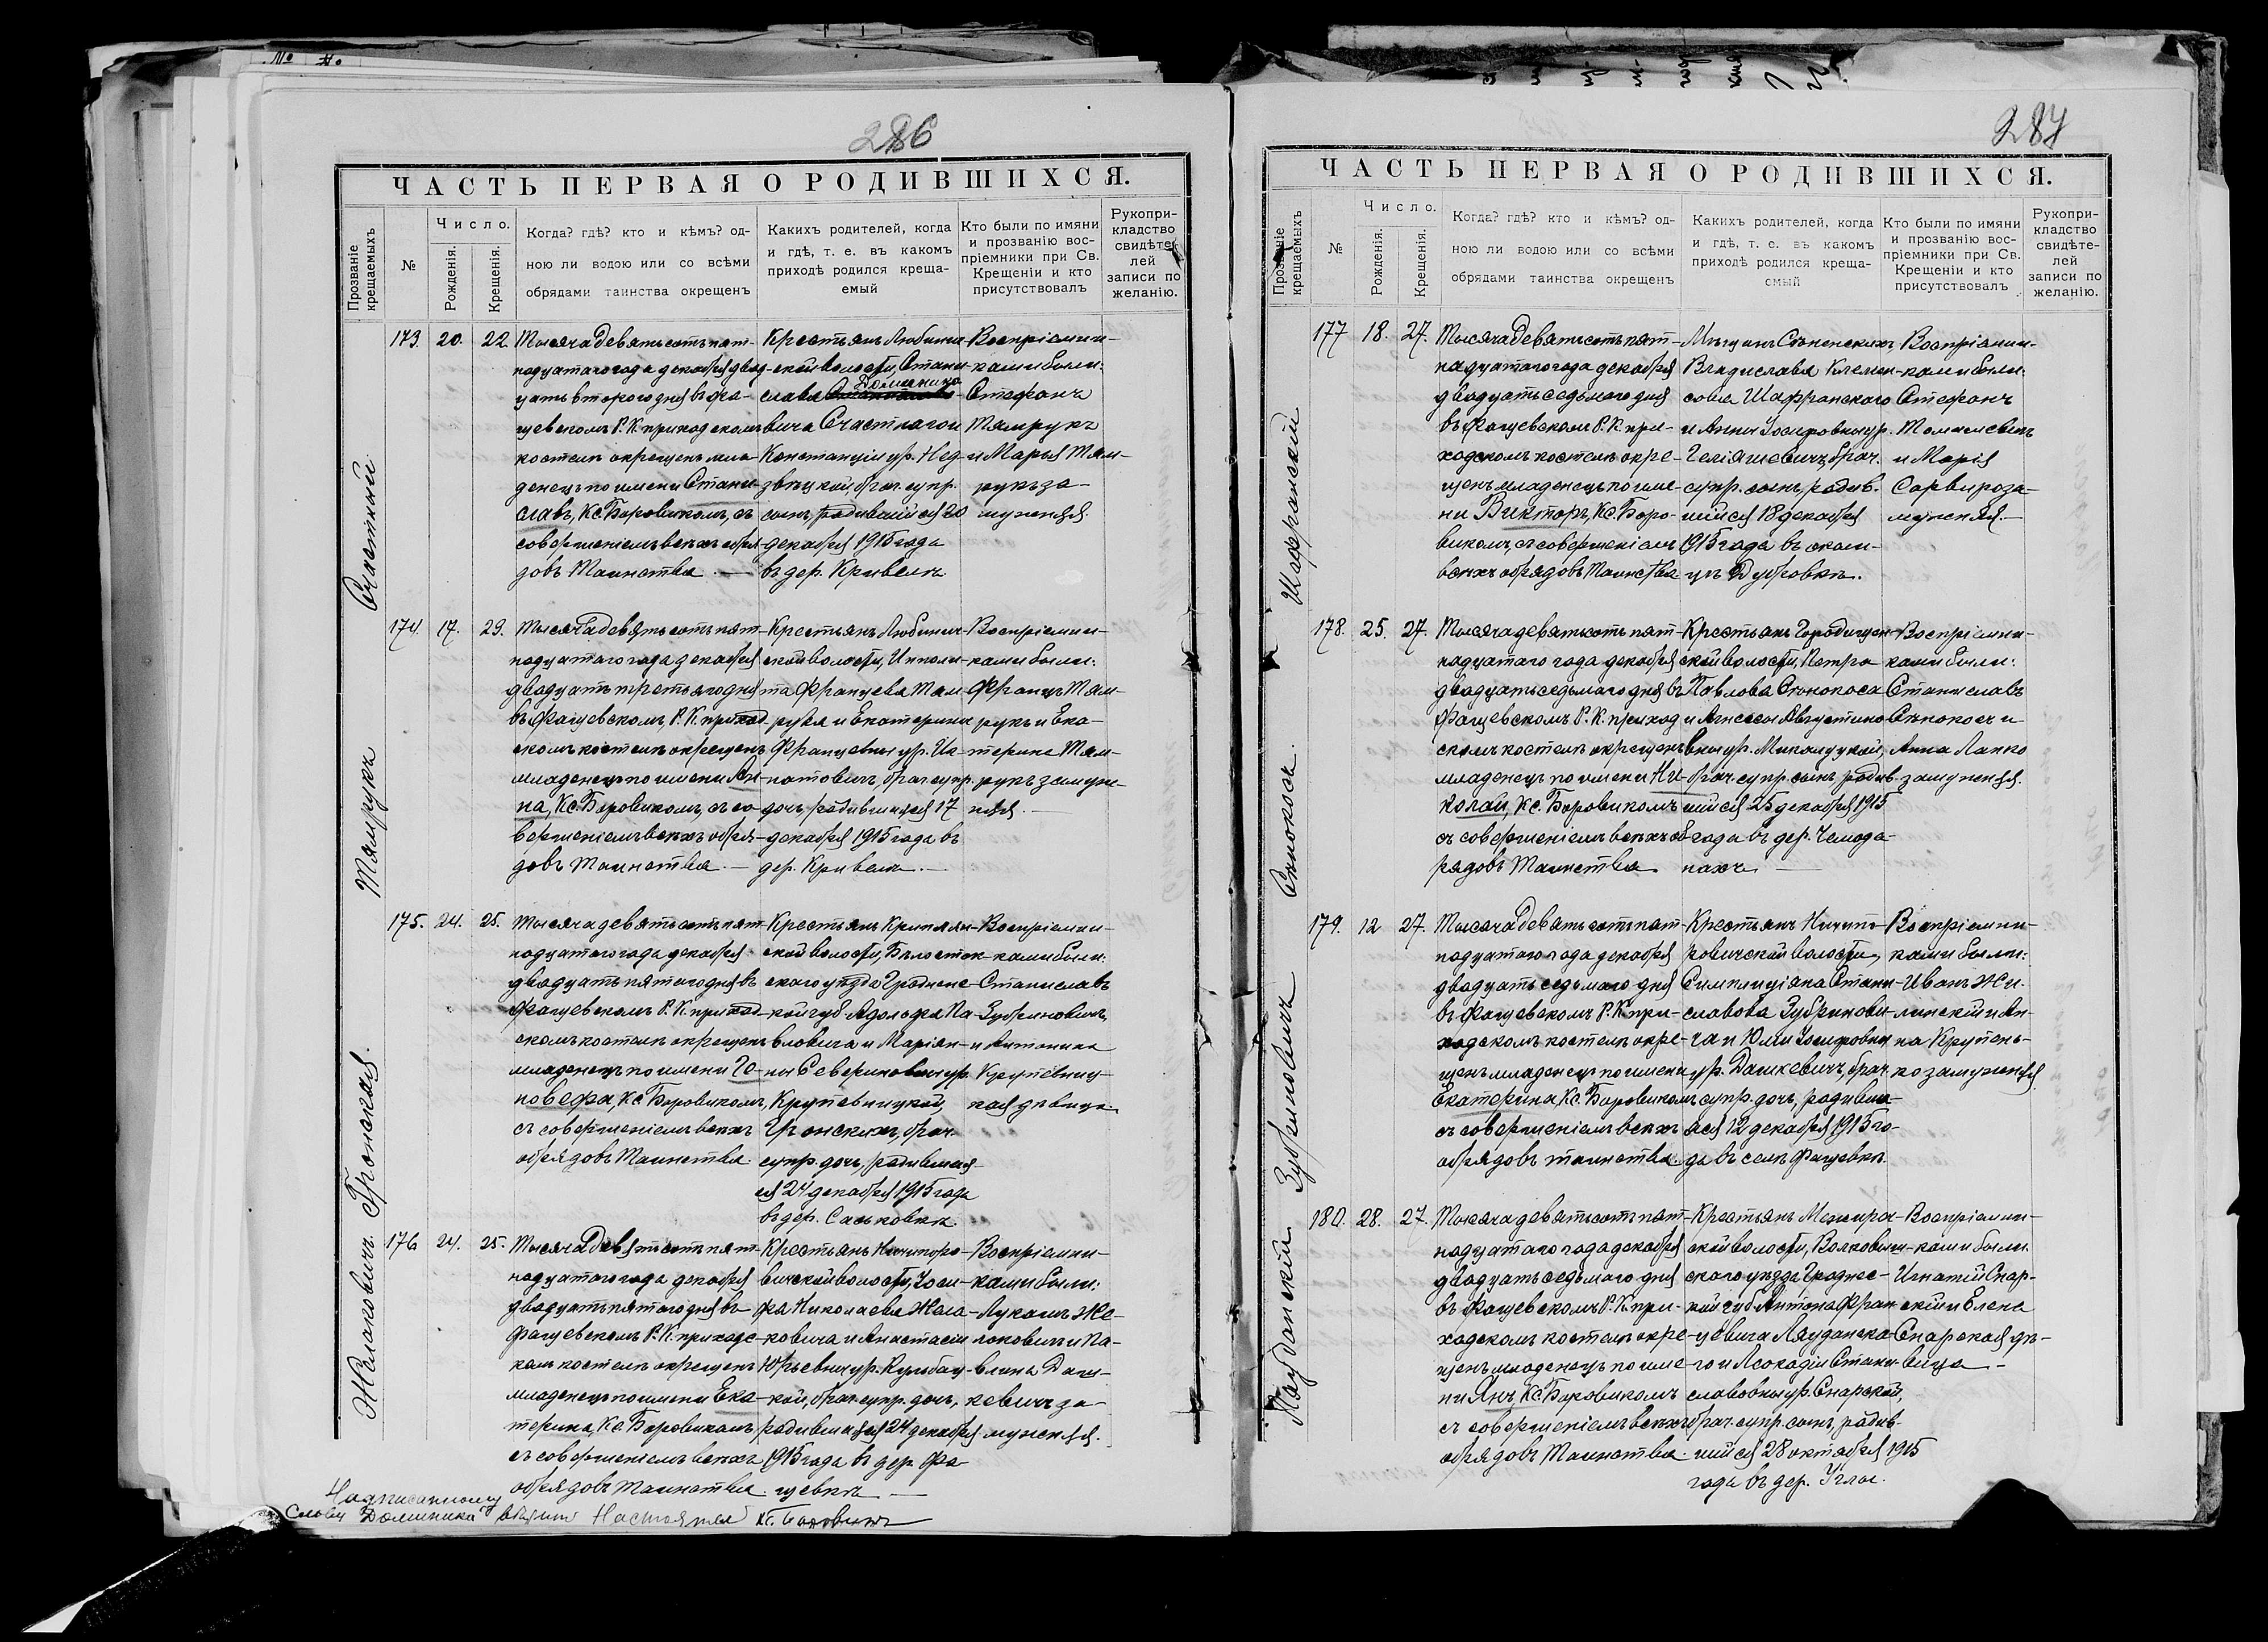 286
ЧАСТЬ ПЕРВАЯ О РОДИВШИХСЯ.
Прозваніе крещаемыхъ
№
Число.
Рожденія.
Крещенія.
Когда? гдѣ? кто и кѣмъ? од-
ною ли водою или со всѣми
обрядами таинства окрещенъ
Какихъ родителей, когда
и гдѣ, т. е. въ какомъ
приходѣ родился креща-
емый
Кто были по имяни
и прозванію вос-
пріемники при Св.
Крещеніи и кто
присутствовалъ
Рукопри-
кладство
свидѣте-
лей
записи по
желанію.
Счастный
173. 20. 22.
Тысяча девятьсотъ пят-
надцатаго года декабря двад-
цать второго дня въ Фа-
щевскомъ Р. К. приходскомъ
костелѣ окрещенъ мла-
денецъ по имени Стани-
славъ, Кс. Боровикомъ, съ
совершеніемъ всѣхъ обря-
довъ Таинства. —
Крестьянъ Любинич-
ской волости, Стани-
слава Доминико-
вича Счастнаго и
Констанціи ур. Нед-
звѣцкой, брач. супр.
сынъ, родившійся 20
декабря 1915 года
въ дер. Кривелѣ
Воспріемни-
ками были:
Стефанъ
Тямрукъ
и Марья Тям-
рукъ за-
мужняя.
Тямрукъ
174. 17. 23.
Тысяча девятьсотъ пят-
надцатаго года декабря
двадцать третьяго дня
въ Фащевскомъ Р. К. приход-
скомъ костелѣ окрещенъ
младенецъ по имени Ан-
на, Кс. Боровикомъ, съ со-
вершеніемъ всѣхъ обря-
довъ Таинства. —
Крестьянъ Любинич-
ской волости, Иппoли-
та Францева Тям-
рука и Екатерины
Францевны ур. Иг-
натовичъ, брач. супр.
дочь, родившаяся 17
декабря 1915 года въ
дер. Кривелѣ. —
Воспріемни-
ками были:
Францъ Тям-
рукъ и Ека-
терина Тям-
рукъ замуж-
няя. —
Гронская.
175. 24. 25.
Тысяча девятьсотъ пят-
надцатаго года декабря
двадцать пятого дня въ
Фащевскомъ Р. К. приход-
скомъ костелѣ окрещенъ
младенецъ по имени Ге-
новефа, Кс. Боровикомъ,
съ совершеніемъ всѣхъ
обрядовъ Таинства.
Крестьянъ Крыплян-
ской волости, Бѣлосток-
скаго уѣзда Гродненс-
кой губ. Адольфа Па-
вловича и Маріан-
ны Севериновны ур.
Крупевницкой,
Гронскихъ, брач.
супр. дочь, родившая-
ся 24 декабря 1915 года
въ дер. Саськовкѣ
Воспріемни-
ками были:
Станиславъ
Зубриновичъ
и Антонина
Крупевниц-
кая дѣвица.
Желоковичъ
176 24. 25.
Тысяча девятьсотъ пят-
надцатаго года декабря
двадцать пятого дня въ
Фащевскомъ Р. К. приходс-
комъ костелѣ окрещенъ
младенецъ по имени Ека-
терина, Кс. Боровикомъ,
съ совершеніемъ всѣхъ
обрядовъ Таинства.
Крестьянъ Ничипоро-
вичской волости, Іоси-
фа Николаева Жела-
ковича и Анастасіи
Юрьевны ур. Кульбац-
кой, брач. супр. дочь,
родившаяся 24 декабря
1915 года въ дер. Фа-
щевкѣ —
Воспріемни-
ками были:
Лукашъ Же-
локовичъ и Па-
влина Даш-
кевичъ за-
мужняя.
Надписанному
слову "Доминика" вѣрить Настоятель Кс. Боровикъ
287
ЧАСТЬ ПЕРВАЯ О РОДИВШИХСЯ.
Прозваніе крещаемыхъ
№
Число.
Рожденія.
Крещенія.
Когда? гдѣ? кто и кѣмъ? од-
ною ли водою или со всѣми
обрядами таинства окрещенъ
Какихъ родителей, когда
и гдѣ, т. е. въ какомъ
приходѣ родился креща-
емый
Кто были по имяни
и прозванію вос-
пріемники при Св.
Крещеніи и кто
присутствовалъ
Рукопри-
кладство
свидѣте-
лей
записи по
желанію.
Шафранскій
177 18. 27.
Тысяча девятьсотъ пят-
надцатаго года декабря
двадцать седьмого дня
въ Фащевскомъ Р. К. при-
ходскомъ костелѣ окре-
щенъ младенецъ по име-
ни Викторъ, Кс. Боро-
викомъ, съ совершеніемъ
всѣхъ обрядовъ Таинства
Мѣщанъ Сѣнненскихъ
Владислава Клемен-
сова Шафранскаго
и Анны Іосифовны ур.
Геліяшевичъ, брач.
супр. сынъ, родив-
шійся 18 декабря
1915 года въ околи-
цѣ Дубровкѣ.
Воспріемни-
ками были:
Стефанъ
Томашевичъ
и Марія
Сарвиро за-
мужняя. —
Сѣнокосъ.
178. 25. 27.
Тысяча девятьсотъ пят-
надцатаго года декабря
двадцать седьмаго дня въ
Фащевскомъ Р. К. приход-
скомъ костелѣ окрещенъ
младенецъ по имени Ни-
колай, Кс. Боровикомъ
съ совершеніемъ всѣхъ об-
рядовъ Таинства.
Крестьянъ Городищен-
ской волости, Петра
Павлова Сѣнокоса
и Агнессы Августино-
вны ур. Микалуцкой,
брач. супр. сынъ родив-
шійся 25 декабря 1915
года въ дер. Чемода-
нахъ —
Воспріемни-
ками были:
Станиславъ
Сѣнокосъ и
Анна Лапко
замужняя.
Зубриновичъ
179. 12 27.
Тысяча девятьсотъ пят-
надцатаго года декабря
двадцать седьмаго дня
въ Фащевскомъ Р. К. при-
ходскомъ костелѣ окре-
щенъ младенецъ по имени
Екатерина, Кс. Боровикомъ
съ совершеніемъ всѣхъ
обрядовъ таинства.
Крестьянъ Ничипо-
ровичской волости,
Симплиціяна Стани-
славова Зубринови-
ча и Юліи Іосифовны
ур. Дашкевичъ, брач.
супр. дочь, родивша-
яся 12 декабря 1915 го-
да въ селѣ Фащевкѣ.
Воспріемни-
ками были:
Иванъ Жи-
линскій и Ан-
на Крутень-
ко замужняя
Ляуданскій
180. 28. 27.
Тысяча девятьсотъ пят-
надцатаго года декабря
двадцать седьмаго дня
въ Фащевскомъ Р. К. при-
ходскомъ костелѣ окре-
щенъ младенецъ по име-
ни Янъ, Кс. Боровикомъ
съ совершеніемъ всѣхъ
обрядовъ Таинства.
Крестьянъ Межирѣч-
ской волости, Волковыш-
скаго уѣзда Гроднес-
кой губ. Антона Фран-
цевича Ляуданска-
го и Леокадіи Стани-
славовны ур. Снарской,
брач. супр. сынъ, родив-
шійся 28 октября 1915
года въ дер. Углы.
Воспріемни-
ками были:
Игнатій Снар-
скій и Елена
Снарская дѣ-
вица —